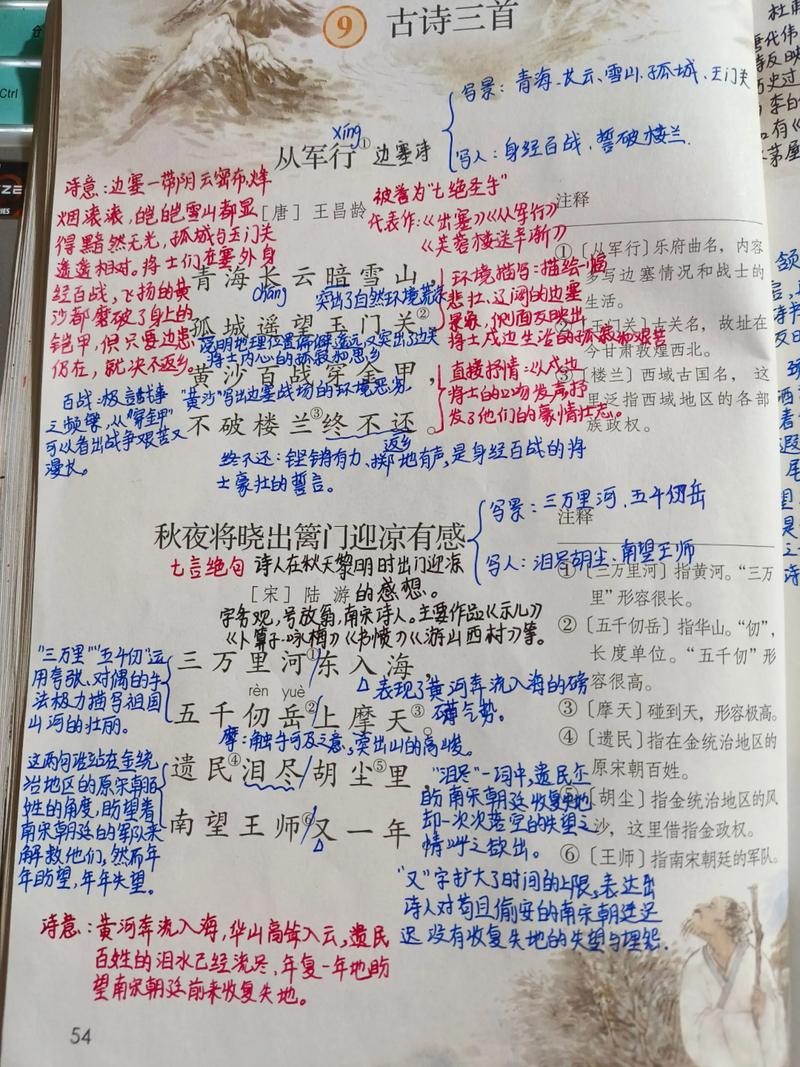 9 古诗三首
写景：青海、长云、雪山、孤城、玉门关
xíng
从军行① 边塞诗
写人：身经百战、誓破楼兰.
诗意：边塞一带阴云密布，烽
烟滚滚，皑皑雪山都显
得黯然无光，孤城与玉门关
遥遥相对。将士们在塞外身
经百战，飞扬的黄
沙都磨破了身上的
铠甲，但只要边患
仍在，就决不返乡。
[唐] 王昌龄
被誉为“七绝圣手”
代表作：《出塞》《从军行》
《芙蓉楼送辛渐》
注释
①〔从军行〕乐府曲名，内容
多写边塞情况和战士的
生活。
②〔玉门关〕古关名，故址在
今甘肃敦煌西北。
③〔楼兰〕西域古国名，这
里泛指西域地区的各部
族政权。
青海长云暗雪山，
cháng
突出了自然环境荒凉
孤城遥望玉门关②。
说明地理位置偏僻遥远，又突出了边关
将士内心的孤寂和思乡
黄沙百战穿金甲，
“黄沙”写出边塞战场的环境恶劣.
不破楼兰③终不还。
返乡
环境描写：描绘一幅
悲壮、辽阔的边塞
景象，侧面反映出
将士戍边生活的孤寂和艰苦
直接抒情：以戍边
将士的口吻发声，抒
发了他们的豪情壮志。
百战：极言战事
之频繁，从“穿金甲”
可以看出战争艰苦又
漫长。
终不还：铿锵有力、掷地有声，是身经百战的将
士豪壮的誓言。
秋夜将晓出篱门迎凉有感
写景：三万里河、五千仞岳
写人：泪尽胡尘、南望王师
七言绝句 诗人在秋天黎明时出门迎凉
[宋] 陆 游 的感想。
字务观，号放翁，南宋诗人。主要作品《示儿》
《卜算子·咏梅》《书愤》《游山西村》等。
注释
①〔三万里河〕指黄河。“三万
里”形容很长。
②〔五千仞岳〕指华山。“仞”，
长度单位。“五千仞”形
容很高。
③〔摩天〕碰到天，形容极高。
④〔遗民〕指在金统治地区的
原宋朝百姓。
⑤〔胡尘〕指金统治地区的风
沙，这里借指金政权。
⑥〔王师〕指南宋朝廷的军队。
“三万里”“五千仞”运
用夸张、对偶的手
法极力描写祖国
山河的壮丽。
三万里河①/东入海，
表现了黄河奔流入海的磅
礴气势。
rèn yuè
五千仞岳②/上摩天③。
摩：触手可及之意，突出山的高峻。
遗民④泪尽/胡尘⑤里，
南望王师⑥/又一年
这两句话站在金统
治地区的原宋朝百
姓的角度，盼望着
南宋朝廷的军队来
解救他们，然而年
年盼望，年年失望。
“泪尽”一词中，遗民尽
盼南宋朝廷收复失地
却一次次落空的失望之
情呼之欲出。
“又”字扩大了时间的上限，表达出
诗人对苟且偷安的南宋朝廷迟
迟没有收复失地的失望与埋怨.
诗意：黄河奔流入海，华山高耸入云，遗民
百姓的泪水已经流尽，年复一年地盼
望南宋朝廷前来收复失地。
54
Ctrl